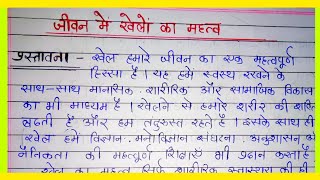 जीवन में खेलों का महत्व
प्रस्तावना - खेल हमारे जीवन का एक महत्वपूर्ण
हिस्सा है। यह हमे स्वस्थ रखने के
साथ-साथ मानसिक, शारीरिक और सामाजिक विकास
का भी माध्यम है। खेलने से हमारे शरीर की शक्ति
बढ़ती है और हम तंदुरुस्त रहते है। इसके साथ ही
खेल हमें विज्ञान, मनोविज्ञान संघटना, अनुशासन और
नैतिकता की महत्वपूर्ण शिक्षाएँ भी प्रदान करता है
खेल का महत्व सिर्फ शारीरिक स्वास्थ्य की ही